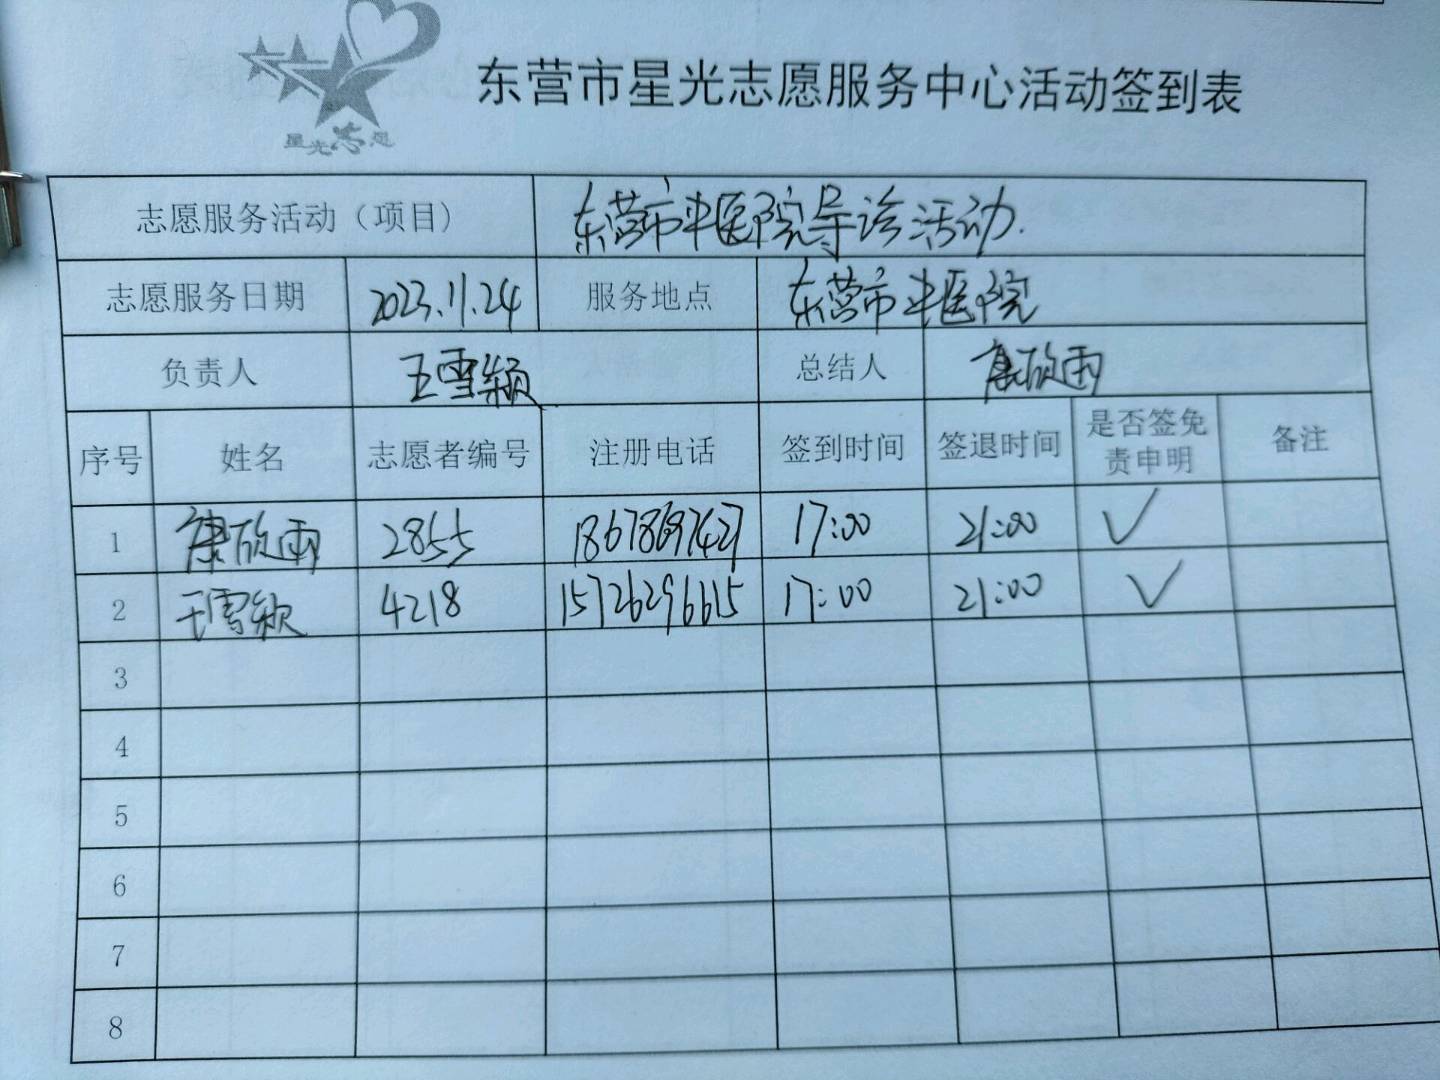 星光志愿
东营市星光志愿服务中心活动签到表
志愿服务活动（项目） 东营市中医院导诊活动.
志愿服务日期 2023.11.24 服务地点 东营市中医院
负责人 王雪颖 总结人 康欣雨
序号 姓名 志愿者编号 注册电话 签到时间 签退时间 是否签免 备注
责申明
1 康欣雨 2855 18678697427 17:00 21:00 ✓
2 王雪颖 4218 15726296615 17:00 21:00 ✓
3
4
5
6
7
8